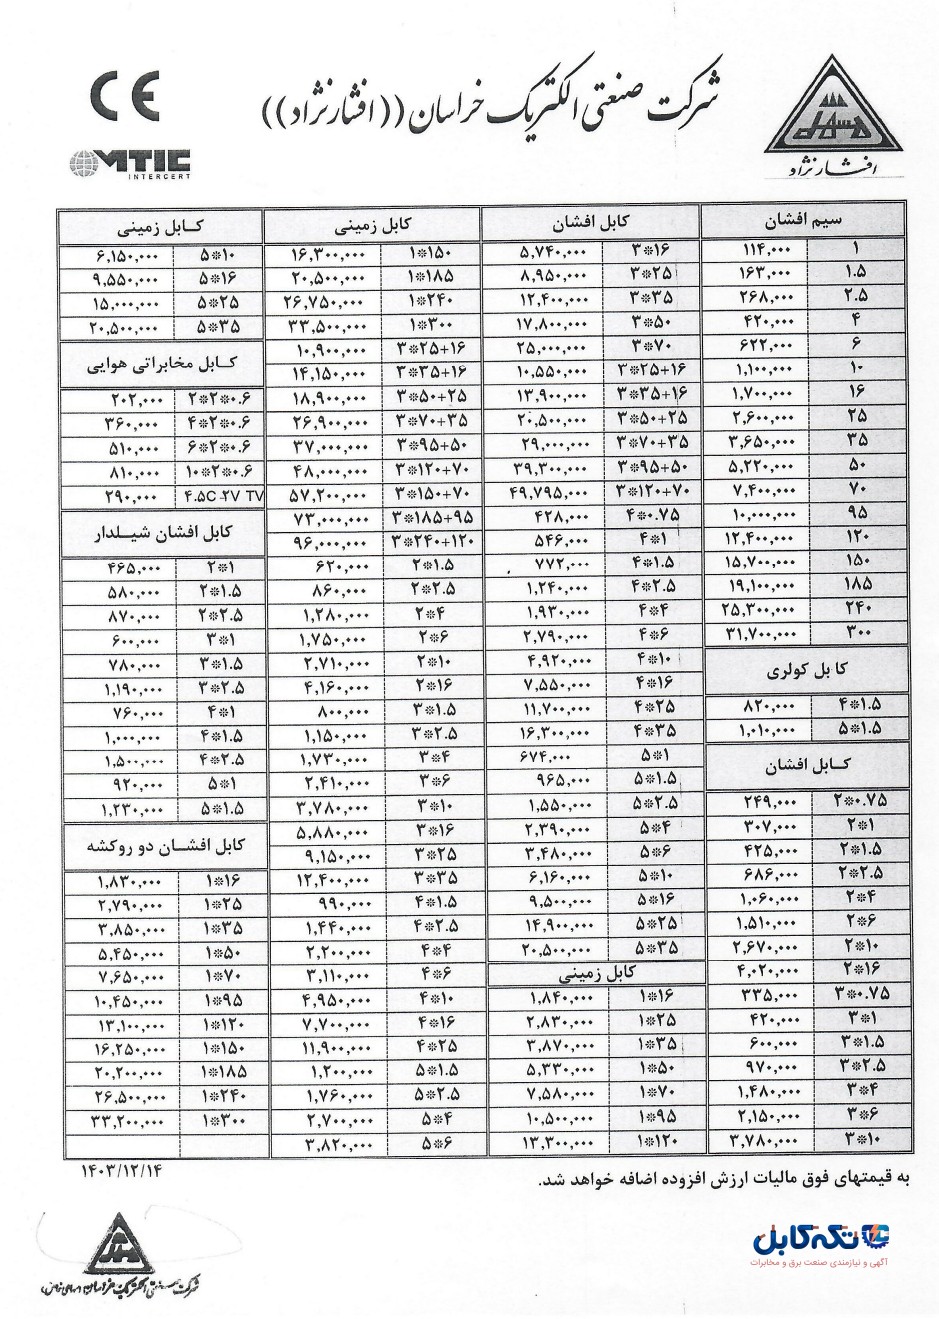 شرکت صنعتی الکتریک خراسان ((افشارنژاد))
CE
MTIC
INTERCERT
افشارنژاد
سیم افشان
۱ ۱۱۴,۰۰۰
۱.۵ ۱۶۳,۰۰۰
۲.۵ ۲۶۸,۰۰۰
۴ ۴۲۰,۰۰۰
۶ ۶۲۲,۰۰۰
۱۰ ۱,۱۰۰,۰۰۰
۱۶ ۱,۷۰۰,۰۰۰
۲۵ ۲,۶۰۰,۰۰۰
۳۵ ۳,۶۵۰,۰۰۰
۵۰ ۵,۲۲۰,۰۰۰
۷۰ ۷,۴۰۰,۰۰۰
۹۵ ۱۰,۰۰۰,۰۰۰
۱۲۰ ۱۲,۴۰۰,۰۰۰
۱۵۰ ۱۵,۷۰۰,۰۰۰
۱۸۵ ۱۹,۱۰۰,۰۰۰
۲۴۰ ۲۵,۳۰۰,۰۰۰
۳۰۰ ۳۱,۷۰۰,۰۰۰
کابل کولری
۴*۱.۵ ۸۲۰,۰۰۰
۵*۱.۵ ۱,۰۱۰,۰۰۰
کابل افشان
۲*۰.۷۵ ۲۴۹,۰۰۰
۲*۱ ۳۰۷,۰۰۰
۲*۱.۵ ۴۲۵,۰۰۰
۲*۲.۵ ۶۸۶,۰۰۰
۲*۴ ۱,۰۶۰,۰۰۰
۲*۶ ۱,۵۱۰,۰۰۰
۲*۱۰ ۲,۶۷۰,۰۰۰
۲*۱۶ ۴,۰۲۰,۰۰۰
۳*۰.۷۵ ۳۳۵,۰۰۰
۳*۱ ۴۲۰,۰۰۰
۳*۱.۵ ۶۰۰,۰۰۰
۳*۲.۵ ۹۷۰,۰۰۰
۳*۴ ۱,۴۸۰,۰۰۰
۳*۶ ۲,۱۵۰,۰۰۰
۳*۱۰ ۳,۷۸۰,۰۰۰
کابل افشان
۳*۱۶ ۵,۷۴۰,۰۰۰
۳*۲۵ ۸,۹۵۰,۰۰۰
۳*۳۵ ۱۲,۴۰۰,۰۰۰
۳*۵۰ ۱۷,۸۰۰,۰۰۰
۳*۷۰ ۲۵,۰۰۰,۰۰۰
۳*۲۵+۱۶ ۱۰,۵۵۰,۰۰۰
۳*۳۵+۱۶ ۱۳,۹۰۰,۰۰۰
۳*۵۰+۲۵ ۲۰,۵۰۰,۰۰۰
۳*۷۰+۳۵ ۲۹,۰۰۰,۰۰۰
۳*۹۵+۵۰ ۳۹,۳۰۰,۰۰۰
۳*۱۲۰+۷۰ ۴۹,۷۹۵,۰۰۰
۴*۰.۷۵ ۴۲۸,۰۰۰
۴*۱ ۵۴۶,۰۰۰
۴*۱.۵ ۷۷۲,۰۰۰
۴*۲.۵ ۱,۲۴۰,۰۰۰
۴*۴ ۱,۹۳۰,۰۰۰
۴*۶ ۲,۷۹۰,۰۰۰
۴*۱۰ ۴,۹۲۰,۰۰۰
۴*۱۶ ۷,۵۵۰,۰۰۰
۴*۲۵ ۱۱,۷۰۰,۰۰۰
۴*۳۵ ۱۶,۳۰۰,۰۰۰
۵*۱ ۶۷۴,۰۰۰
۵*۱.۵ ۹۶۵,۰۰۰
۵*۲.۵ ۱,۵۵۰,۰۰۰
۵*۴ ۲,۳۹۰,۰۰۰
۵*۶ ۳,۴۸۰,۰۰۰
۵*۱۰ ۶,۱۶۰,۰۰۰
۵*۱۶ ۹,۵۰۰,۰۰۰
۵*۲۵ ۱۴,۹۰۰,۰۰۰
۵*۳۵ ۲۰,۵۰۰,۰۰۰
کابل زمینی
۱*۱۶ ۱,۸۴۰,۰۰۰
۱*۲۵ ۲,۸۳۰,۰۰۰
۱*۳۵ ۳,۸۷۰,۰۰۰
۱*۵۰ ۵,۳۳۰,۰۰۰
۱*۷۰ ۷,۵۸۰,۰۰۰
۱*۹۵ ۱۰,۵۰۰,۰۰۰
۱*۱۲۰ ۱۳,۳۰۰,۰۰۰
کابل زمینی
۱*۱۵۰ ۱۶,۳۰۰,۰۰۰
۱*۱۸۵ ۲۰,۵۰۰,۰۰۰
۱*۲۴۰ ۲۶,۷۵۰,۰۰۰
۱*۳۰۰ ۳۳,۵۰۰,۰۰۰
۳*۲۵+۱۶ ۱۰,۹۰۰,۰۰۰
۳*۳۵+۱۶ ۱۴,۱۵۰,۰۰۰
۳*۵۰+۲۵ ۱۸,۹۰۰,۰۰۰
۳*۷۰+۳۵ ۲۶,۹۰۰,۰۰۰
۳*۹۵+۵۰ ۳۷,۰۰۰,۰۰۰
۳*۱۲۰+۷۰ ۴۸,۰۰۰,۰۰۰
۳*۱۵۰+۷۰ ۵۷,۲۰۰,۰۰۰
۳*۱۸۵+۹۵ ۷۳,۰۰۰,۰۰۰
۳*۲۴۰+۱۲۰ ۹۶,۰۰۰,۰۰۰
۲*۱.۵ ۶۲۰,۰۰۰
۲*۲.۵ ۸۶۰,۰۰۰
۲*۴ ۱,۲۸۰,۰۰۰
۲*۶ ۱,۷۵۰,۰۰۰
۲*۱۰ ۲,۷۱۰,۰۰۰
۲*۱۶ ۴,۱۶۰,۰۰۰
۳*۱.۵ ۸۰۰,۰۰۰
۳*۲.۵ ۱,۱۵۰,۰۰۰
۳*۴ ۱,۷۳۰,۰۰۰
۳*۶ ۲,۴۱۰,۰۰۰
۳*۱۰ ۳,۷۸۰,۰۰۰
۳*۱۶ ۵,۸۸۰,۰۰۰
۳*۲۵ ۹,۱۵۰,۰۰۰
۳*۳۵ ۱۲,۴۰۰,۰۰۰
۴*۱.۵ ۹۹۰,۰۰۰
۴*۲.۵ ۱,۴۴۰,۰۰۰
۴*۴ ۲,۲۰۰,۰۰۰
۴*۶ ۳,۱۱۰,۰۰۰
۴*۱۰ ۴,۹۵۰,۰۰۰
۴*۱۶ ۷,۷۰۰,۰۰۰
۴*۲۵ ۱۱,۹۰۰,۰۰۰
۵*۱.۵ ۱,۲۰۰,۰۰۰
۵*۲.۵ ۱,۷۶۰,۰۰۰
۵*۴ ۲,۷۰۰,۰۰۰
۵*۶ ۳,۸۲۰,۰۰۰
کابل زمینی
۵*۱۰ ۶,۱۵۰,۰۰۰
۵*۱۶ ۹,۵۵۰,۰۰۰
۵*۲۵ ۱۵,۰۰۰,۰۰۰
۵*۳۵ ۲۰,۵۰۰,۰۰۰
کابل مخابراتی هوایی
۲*۲*۰.۶ ۲۰۲,۰۰۰
۴*۲*۰.۶ ۳۶۰,۰۰۰
۶*۲*۰.۶ ۵۱۰,۰۰۰
۱۰*۲*۰.۶ ۸۱۰,۰۰۰
۴.۵C-۲V TV ۲۹۰,۰۰۰
کابل افشان شیلدار
۲*۱ ۴۶۵,۰۰۰
۲*۱.۵ ۵۸۰,۰۰۰
۲*۲.۵ ۸۷۰,۰۰۰
۳*۱ ۶۰۰,۰۰۰
۳*۱.۵ ۷۸۰,۰۰۰
۳*۲.۵ ۱,۱۹۰,۰۰۰
۴*۱ ۷۶۰,۰۰۰
۴*۱.۵ ۱,۰۰۰,۰۰۰
۴*۲.۵ ۱,۵۰۰,۰۰۰
۵*۱ ۹۲۰,۰۰۰
۵*۱.۵ ۱,۲۳۰,۰۰۰
کابل افشان دو روکشه
۱*۱۶ ۱,۸۳۰,۰۰۰
۱*۲۵ ۲,۷۹۰,۰۰۰
۱*۳۵ ۳,۸۵۰,۰۰۰
۱*۵۰ ۵,۴۵۰,۰۰۰
۱*۷۰ ۷,۶۵۰,۰۰۰
۱*۹۵ ۱۰,۴۵۰,۰۰۰
۱*۱۲۰ ۱۳,۱۰۰,۰۰۰
۱*۱۵۰ ۱۶,۲۵۰,۰۰۰
۱*۱۸۵ ۲۰,۲۰۰,۰۰۰
۱*۲۴۰ ۲۶,۵۰۰,۰۰۰
۱*۳۰۰ ۳۳,۲۰۰,۰۰۰
به قیمتهای فوق مالیات ارزش افزوده اضافه خواهد شد.
۱۴۰۳/۱۲/۱۴
تکه کابل
آگهی و نیازمندی صنعت برق و مخابرات
شرکت صنعتی الکتریک خراسان